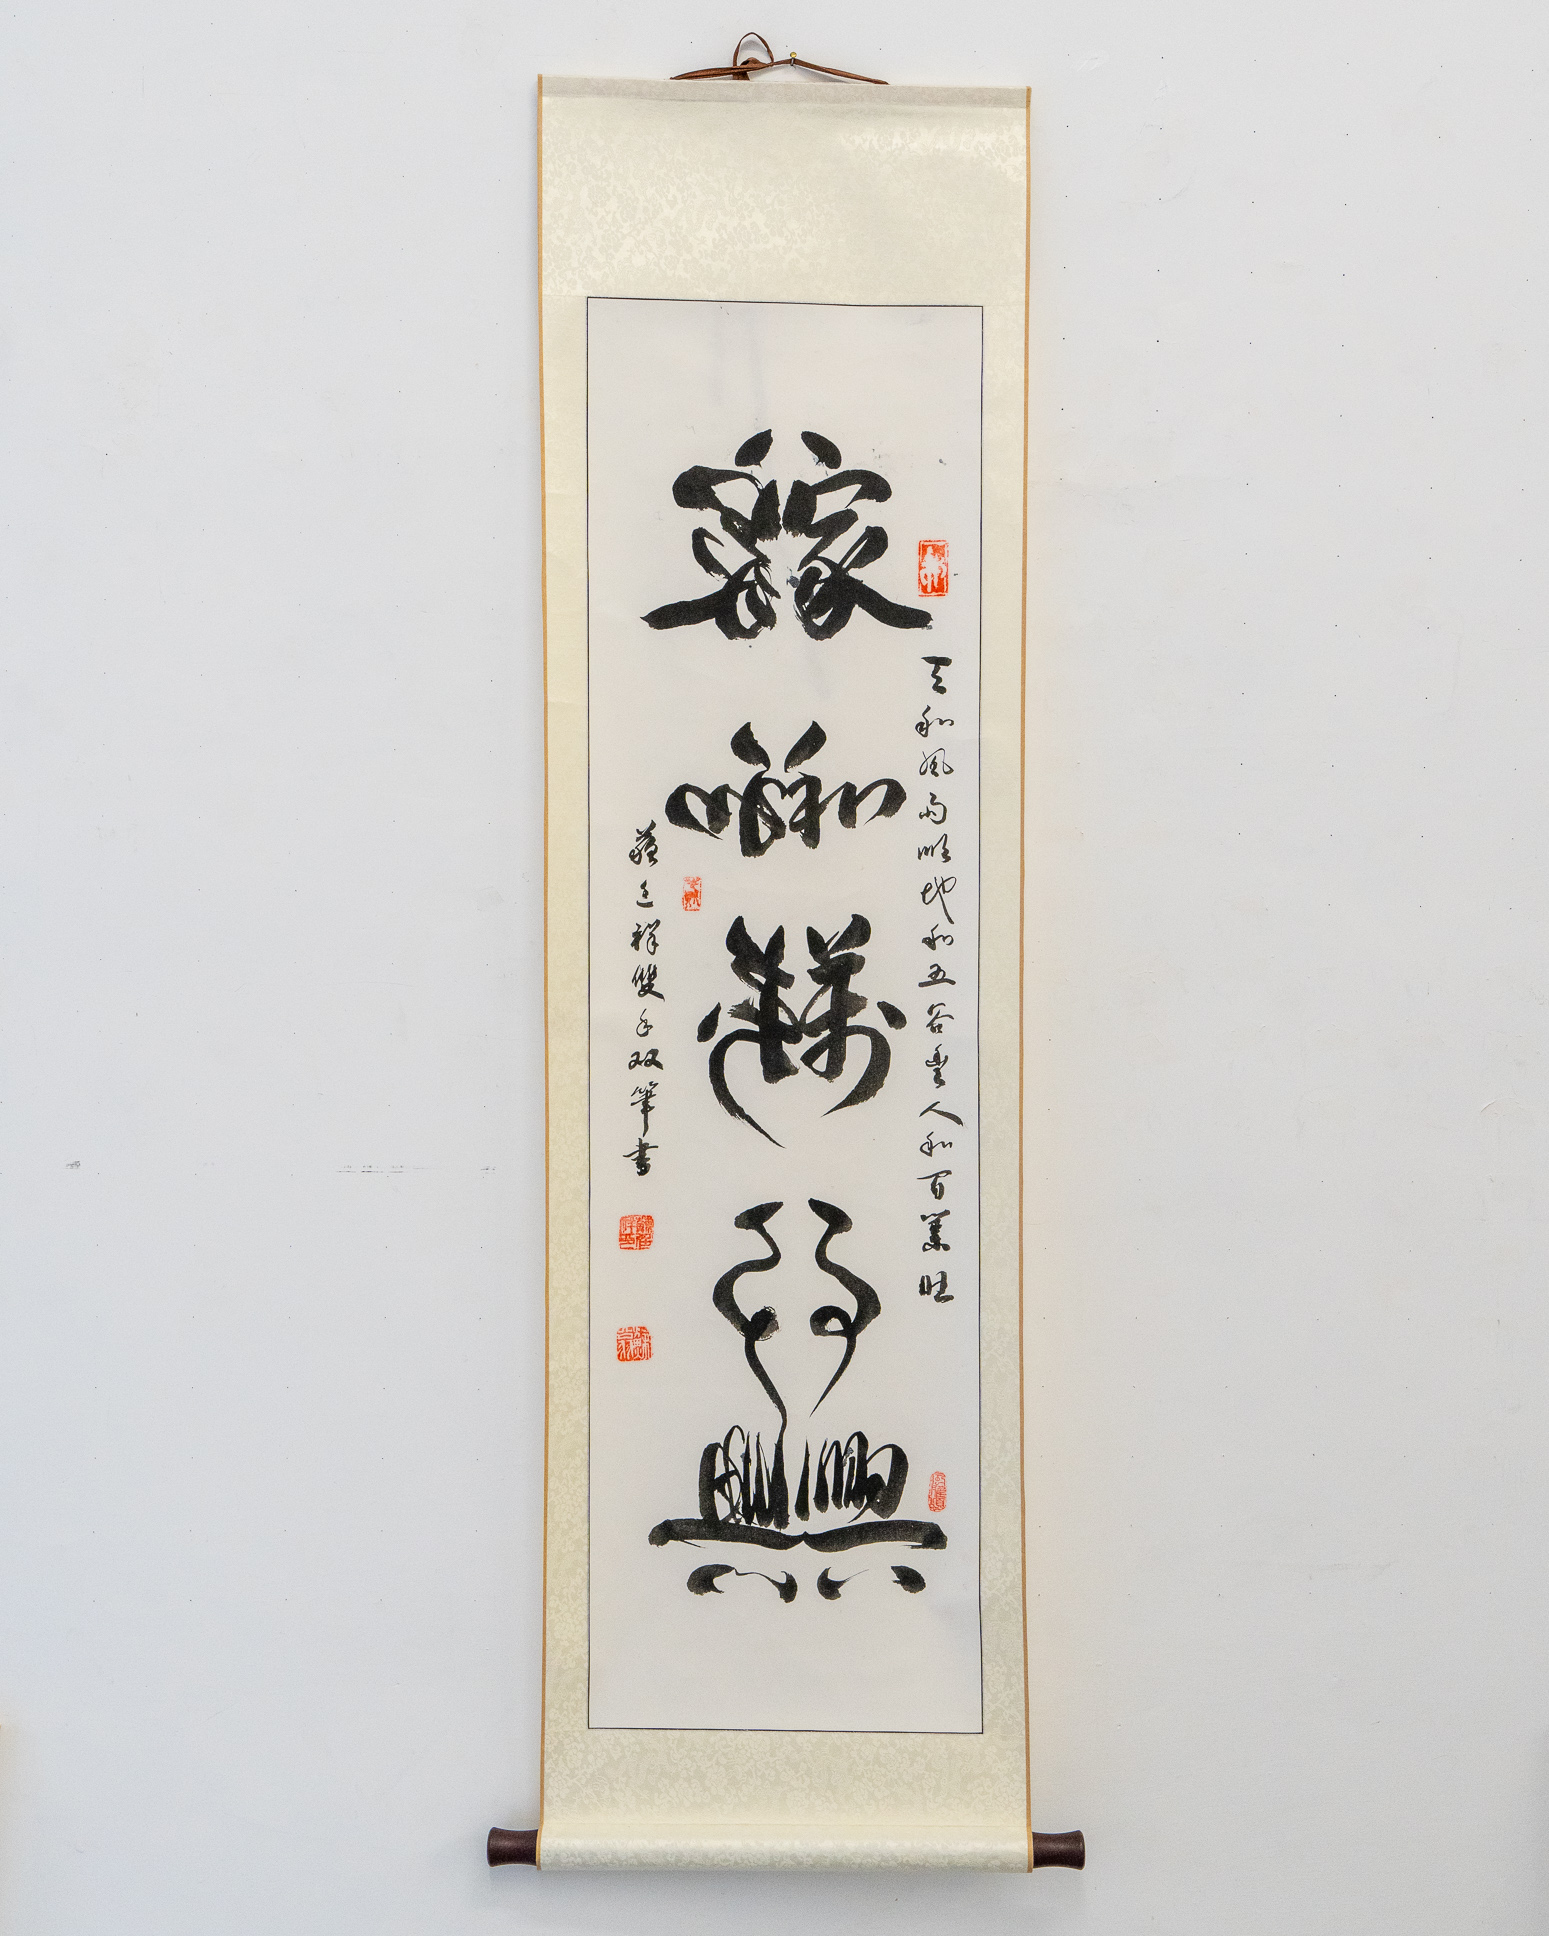 家和萬事興
天和風雨順地和五谷豐人和百業旺
蘇廷祥雙手双筆書